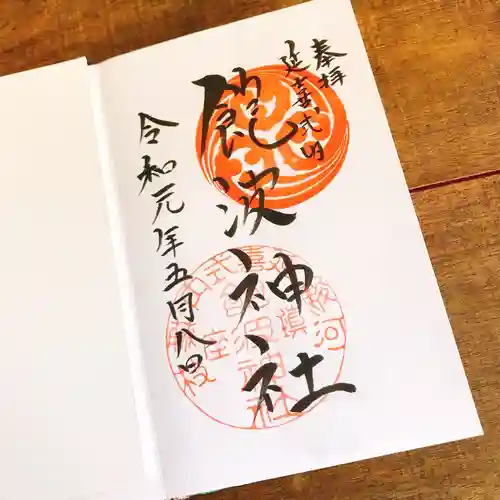 奉拝
延喜式内
飽波神社
令和元年五月八日